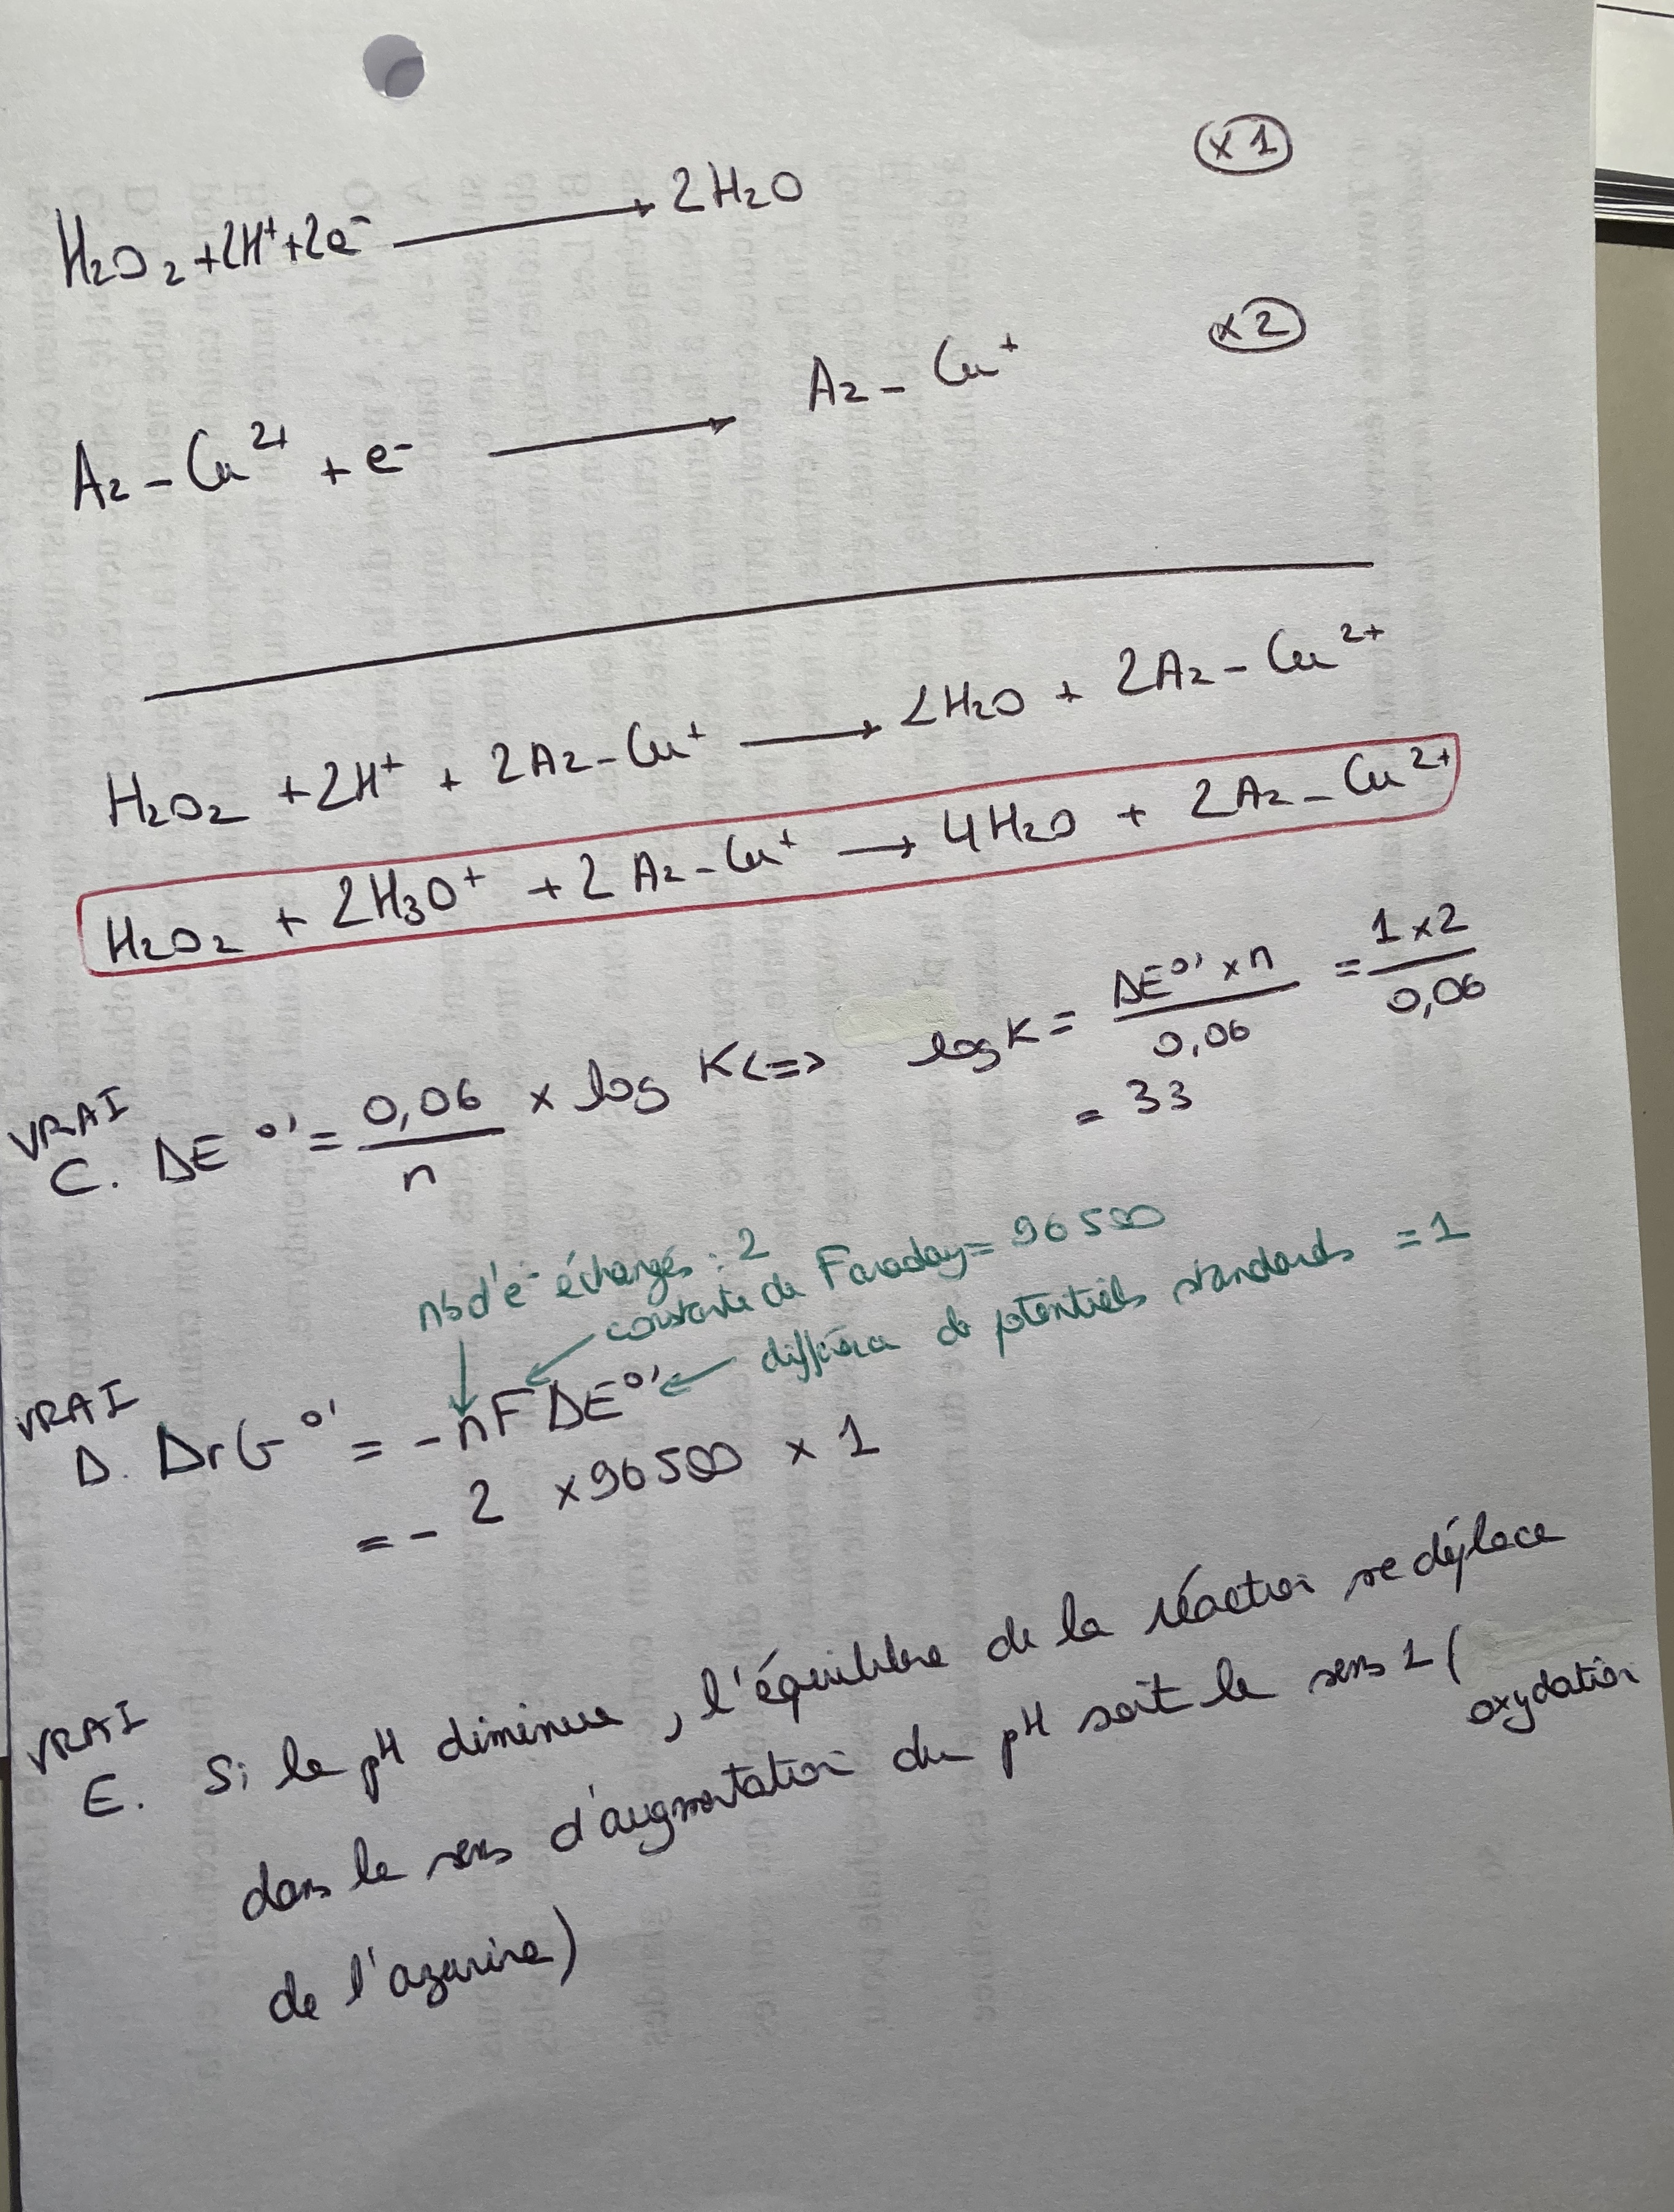 x 1
H₂O₂ + 2H⁺ + 2e⁻ → 2H₂O
x 2
Az - Cu²⁺ + e⁻ → Az - Cu⁺
H₂O₂ + 2H⁺ + 2Az - Cu⁺ → 2H₂O + 2Az - Cu²⁺
H₂O₂ + 2H₃O⁺ + 2Az - Cu⁺ → 4H₂O + 2Az - Cu²⁺
VRAI
C. ΔE°' = 0,06 / n × log K <=> log K = ΔE°' × n / 0,06 = 1 × 2 / 0,06
= 33
nb d'e⁻ échangés : 2
constante de Faraday = 96500
différence de potentiels standards = 1
VRAI
D. ΔrG°' = - n F ΔE°'
= - 2 × 96500 × 1
VRAI
E. Si le pH diminue, l'équilibre de la réaction se déplace
dans le sens d'augmentation du pH soit le sens 1 (oxydation
de l'azurine)